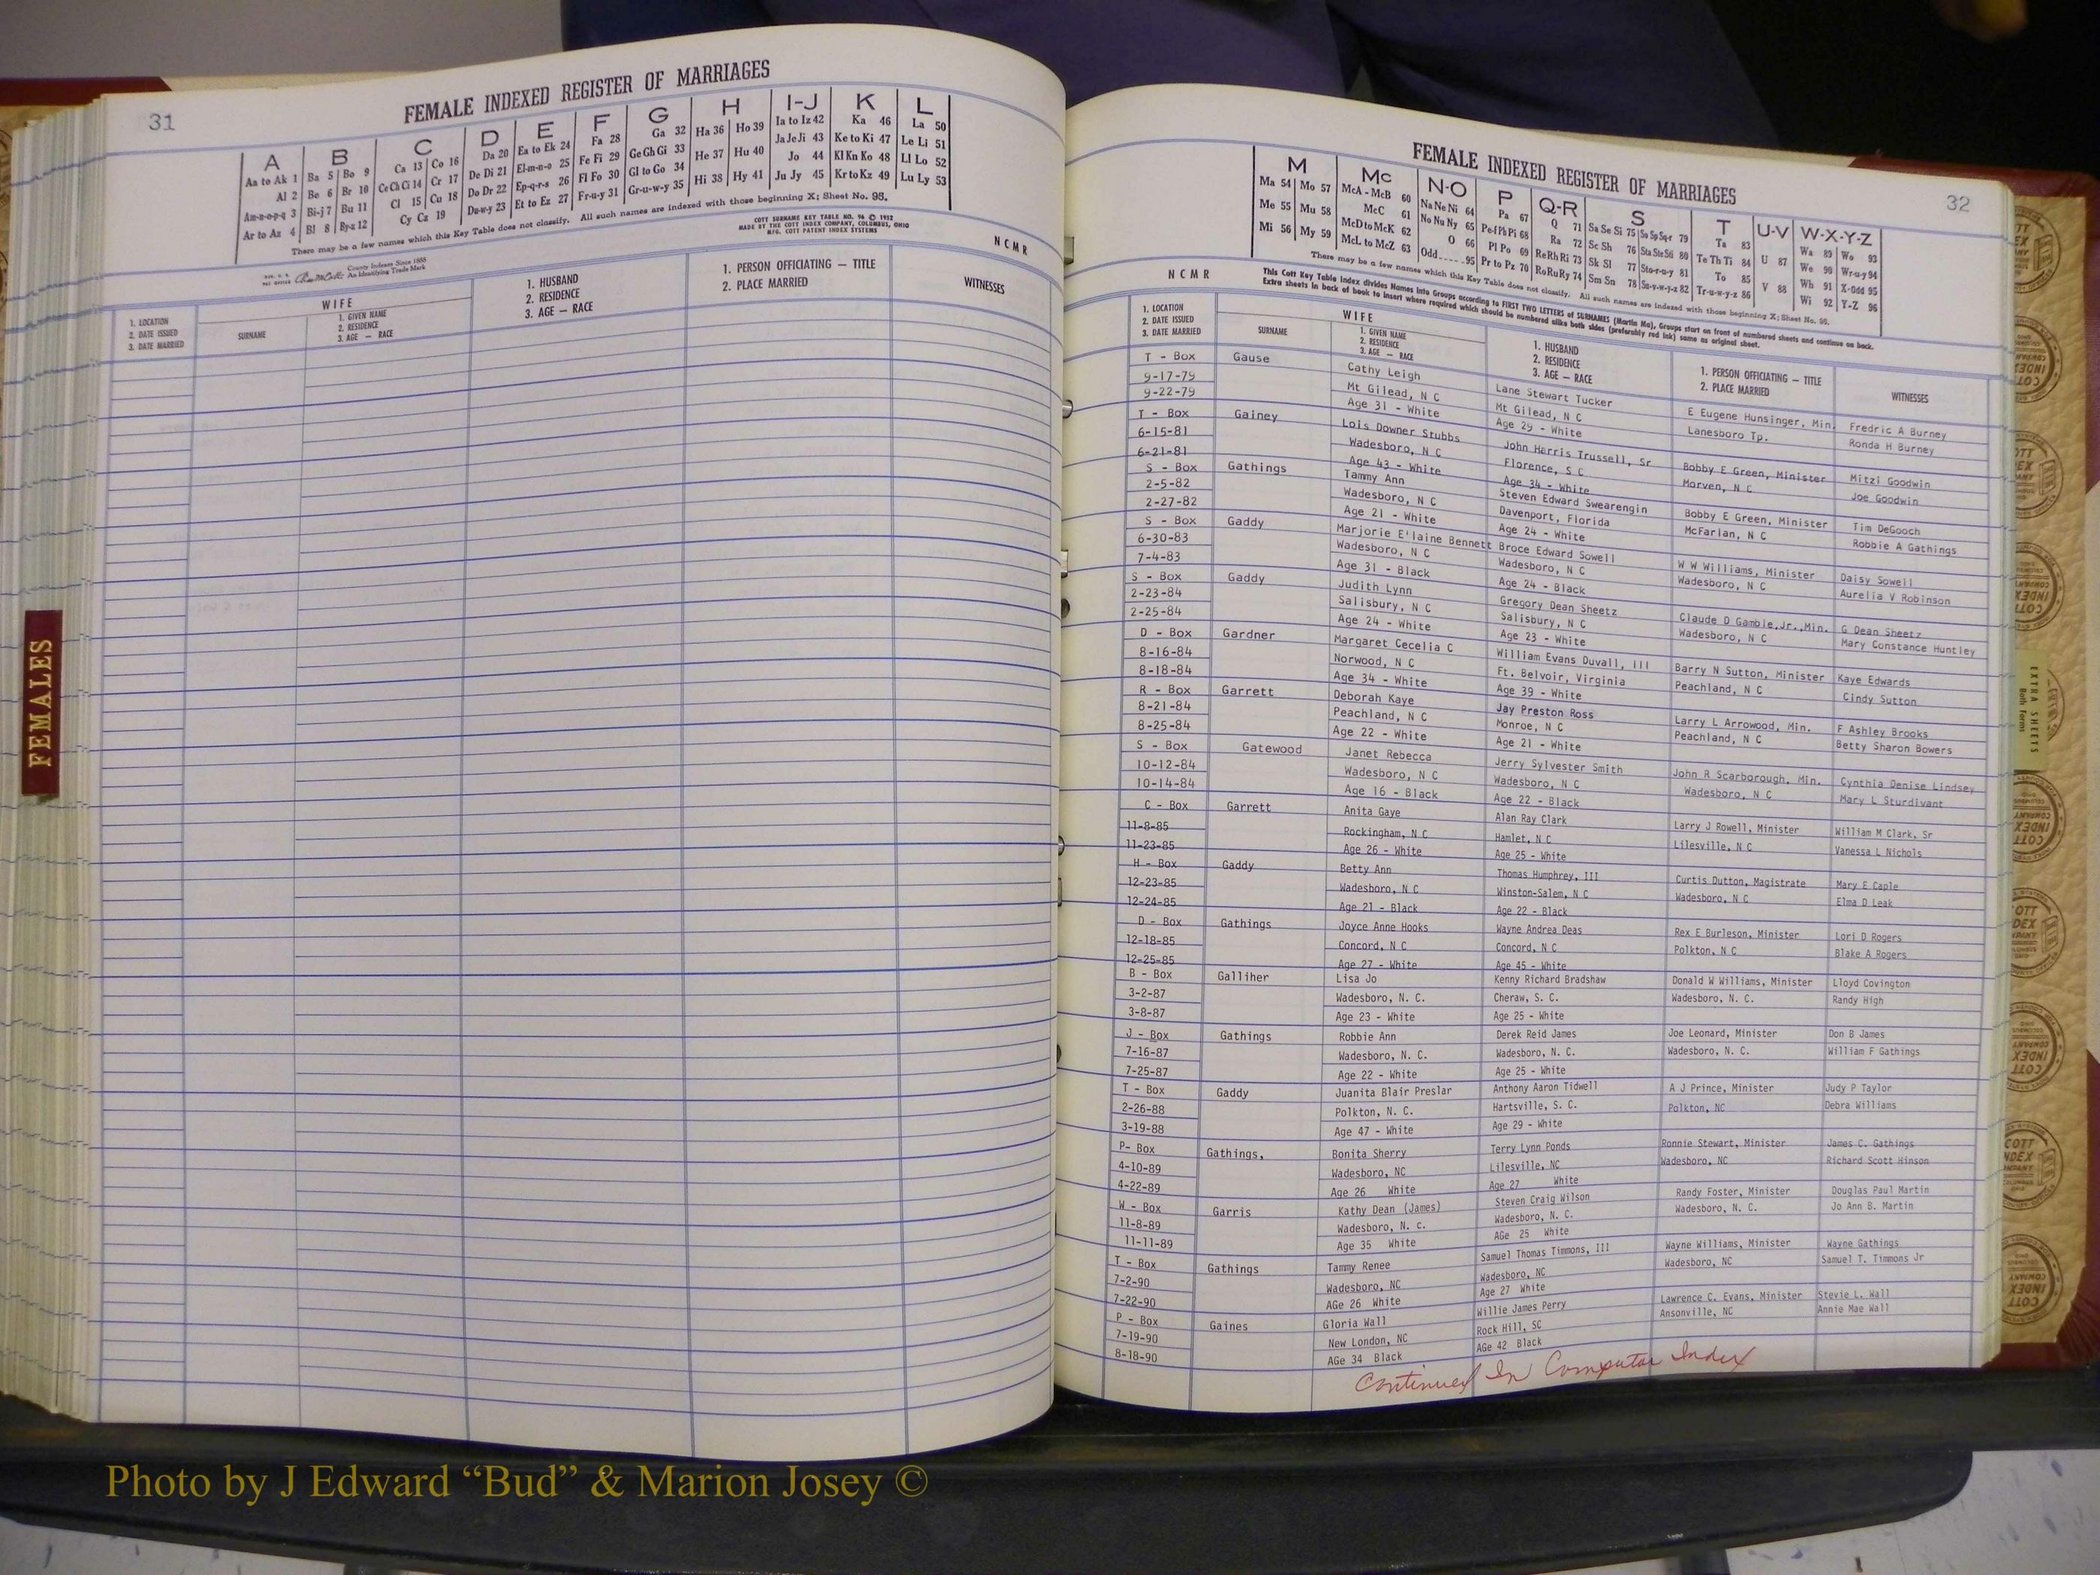 31
FEMALE INDEXED REGISTER OF MARRIAGES
A
Aa to Ak 1
Al 2
Am-n-o-p-q 3
Ar to Az 4
B
Ba 5 Bo 9
Be 6 Br 10
Bi-j 7 Bu 11
Bl 8 By-z 12
C
Ca 13 Co 16
Ce Ch Ci 14 Cr 17
Cl 15 Cu 18
Cy Cz 19
D
Da 20
De Di 21
Do Dr 22
Du-w-y 23
E
Ea to Ek 24
El-m-n-o 25
Ep-q-r-s 26
Et to Ez 27
F
Fa 28
Fe Fi 29
Fl Fo 30
Fr-u-y 31
G
Ga 32
Ge Gh Gi 33
Gl to Go 34
Gr-u-w-y 35
H
Ha 36 Ho 39
He 37 Hu 40
Hi 38 Hy 41
I-J
Ia to Iz 42
Ja Je Ji 43
Jo 44
Ju Jy 45
K
Ka 46
Ke to Ki 47
Kl Kn Ko 48
Kr to Kz 49
L
La 50
Le Li 51
Ll Lo 52
Lu Ly 53
There may be a few names which this Key Table does not classify. All such names are indexed with those beginning X; Sheet No. 96.
COTT SURNAME KEY TABLE NO. 96 © 1952
MADE BY THE COTT INDEX COMPANY, COLUMBUS, OHIO
MFG. COTT PATENT INDEX SYSTEMS
County Indexes Since 1888
An Identifying Trade Mark
N C M R
1. LOCATION
2. DATE ISSUED
3. DATE MARRIED
WIFE
SURNAME
1. GIVEN NAME
2. RESIDENCE
3. AGE — RACE
1. HUSBAND
2. RESIDENCE
3. AGE — RACE
1. PERSON OFFICIATING — TITLE
2. PLACE MARRIED
WITNESSES
FEMALES
FEMALE INDEXED REGISTER OF MARRIAGES
32
M
Ma 54 Mo 57
Me 55 Mu 58
Mi 56 My 59
Mc
McA - McB 60
McC 61
McD to McK 62
McL to McZ 63
N-O
Na Ne Ni 64
No Nu Ny 65
O 66
Odd 95
P
Pa 67
Pe-f Ph Pi 68
Pl Po 69
Pr to Pz 70
Q-R
Q 71
Ra 72
Re Rh Ri 73
Ro Ru Ry 74
S
Sa Se Si 75 So Sp Sq-r 79
Sc Sh 76 Sta Ste Sti 80
Sk Sl 77 Sto-r-u-y 81
Sm Sn 78 Su-v-w-y-z 82
T
Ta 83
Te Th Ti 84
To 85
Tr-u-w-y-z 86
U-V
U 87
V 88
W-X-Y-Z
Wa 89 Wo 93
We 90 Wr-u-y 94
Wh 91 X-Odd 95
Wi 92 Y-Z 96
There may be a few names which this Key Table does not classify. All such names are indexed with those beginning X; Sheet No. 96.
N C M R
This Cott Key Table Index divides Names into Groups according to FIRST TWO LETTERS of SURNAMES (Martin Ma), Groups start on front of numbered sheets and continue on back.
Extra sheets in back of book to insert where required which should be numbered alike both sides (preferably red ink) same as original sheet.
1. LOCATION
2. DATE ISSUED
3. DATE MARRIED
WIFE
SURNAME
1. GIVEN NAME
2. RESIDENCE
3. AGE — RACE
1. HUSBAND
2. RESIDENCE
3. AGE — RACE
1. PERSON OFFICIATING — TITLE
2. PLACE MARRIED
WITNESSES
T - Box Gause Cathy Leigh Lane Stewart Tucker E Eugene Hunsinger, Min. Fredric A Burney
9-17-79 Mt Gilead, N C Mt Gilead, N C Lanesboro Tp. Ronda H Burney
9-22-79 Age 31 - White Age 29 - White
T - Box Gainey Lois Downer Stubbs John Harris Trussell, Sr Bobby E Green, Minister Mitzi Goodwin
6-15-81 Wadesboro, N C Florence, S C Morven, N C Joe Goodwin
6-21-81 Age 43 - White Age 34 - White
S - Box Gathings Tammy Ann Steven Edward Swearengin Bobby E Green, Minister Tim DeGooch
2-5-82 Wadesboro, N C Davenport, Florida McFarlan, N C Robbie A Gathings
2-27-82 Age 21 - White Age 24 - White
S - Box Gaddy Marjorie E'laine Bennett Broce Edward Sowell W W Williams, Minister Daisy Sowell
6-30-83 Wadesboro, N C Wadesboro, N C Wadesboro, N C Aurelia V Robinson
7-4-83 Age 31 - Black Age 24 - Black
S - Box Gaddy Judith Lynn Gregory Dean Sheetz Claude D Gamble,Jr.,Min. G Dean Sheetz
2-23-84 Salisbury, N C Salisbury, N C Wadesboro, N C Mary Constance Huntley
2-25-84 Age 24 - White Age 23 - White
D - Box Gardner Margaret Cecelia C William Evans Duvall, III Barry N Sutton, Minister Kaye Edwards
8-16-84 Norwood, N C Ft. Belvoir, Virginia Peachland, N C Cindy Sutton
8-18-84 Age 34 - White Age 39 - White
R - Box Garrett Deborah Kaye Jay Preston Ross Larry L Arrowood, Min. F Ashley Brooks
8-21-84 Peachland, N C Monroe, N C Peachland, N C Betty Sharon Bowers
8-25-84 Age 22 - White Age 21 - White
S - Box Gatewood Janet Rebecca Jerry Sylvester Smith John R Scarborough, Min. Cynthia Denise Lindsey
10-12-84 Wadesboro, N C Wadesboro, N C Wadesboro, N C Mary L Sturdivant
10-14-84 Age 16 - Black Age 22 - Black
C - Box Garrett Anita Gaye Alan Ray Clark Larry J Rowell, Minister William M Clark, Sr
11-8-85 Rockingham, N C Hamlet, N C Lilesville, N C Vanessa L Nichols
11-23-85 Age 26 - White Age 25 - White
H - Box Gaddy Betty Ann Thomas Humphrey, III Curtis Dutton, Magistrate Mary E Caple
12-23-85 Wadesboro, N C Winston-Salem, N C Wadesboro, N C Elma D Leak
12-24-85 Age 21 - Black Age 22 - Black
D - Box Gathings Joyce Anne Hooks Wayne Andrea Deas Rex E Burleson, Minister Lori D Rogers
12-18-85 Concord, N C Concord, N C Polkton, N C Blake A Rogers
12-25-85 Age 27 - White Age 45 - White
B - Box Galliher Lisa Jo Kenny Richard Bradshaw Donald W Williams, Minister Lloyd Covington
3-2-87 Wadesboro, N. C. Cheraw, S. C. Wadesboro, N. C. Randy High
3-8-87 Age 23 - White Age 25 - White
J - Box Gathings Robbie Ann Derek Reid James Joe Leonard, Minister Don B James
7-16-87 Wadesboro, N. C. Wadesboro, N. C. Wadesboro, N. C. William F Gathings
7-25-87 Age 22 - White Age 25 - White
T - Box Gaddy Juanita Blair Preslar Anthony Aaron Tidwell A J Prince, Minister Judy P Taylor
2-26-88 Polkton, N. C. Hartsville, S. C. Polkton, NC Debra Williams
3-19-88 Age 47 - White Age 29 - White
P- Box Gathings, Bonita Sherry Terry Lynn Ponds Ronnie Stewart, Minister James C. Gathings
4-10-89 Wadesboro, NC Lilesville, NC Wadesboro, NC Richard Scott Hinson
4-22-89 Age 26 White Age 27 White
W - Box Garris Kathy Dean (James) Steven Craig Wilson Randy Foster, Minister Douglas Paul Martin
11-8-89 Wadesboro, N. c. Wadesboro, N. C. Wadesboro, N. C. Jo Ann B. Martin
11-11-89 Age 35 White AGe 25 White
T - Box Gathings Tammy Renee Samuel Thomas Timmons, III Wayne Williams, Minister Wayne Gathings
7-2-90 Wadesboro, NC Wadesboro, NC Wadesboro, NC Samuel T. Timmons Jr
7-22-90 AGe 26 White Age 27 White
P - Box Gaines Gloria Wall Willie James Perry Lawrence C. Evans, Minister Stevie L. Wall
7-19-90 New London, NC Rock Hill, SC Ansonville, NC Annie Mae Wall
8-18-90 AGe 34 Black AGe 42 Black
Continued In Computer Index
EXTRA SHEETS
Both Forms
Photo by J Edward “Bud” & Marion Josey ©